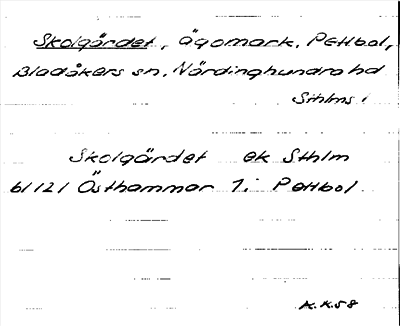 Skolgärdet, ägomark, Pettbol,
Bladåkers sn, Närdinghundra hd
Sthlms l
Skolgärdet ek Sthlm
61121 Östhammar 7i Pettbol
A.K.58